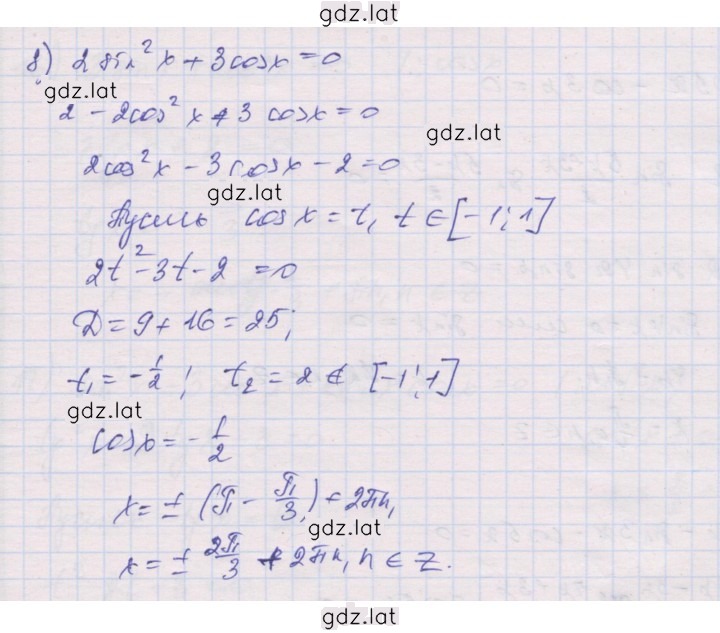 gdz.lat
8) 2 sin² x + 3 cos x = 0
gdz.lat
2 - 2cos² x + 3 cos x = 0
gdz.lat
2cos² x - 3 cos x - 2 = 0
gdz.lat
Пусть cos x = t, t ∈ [-1; 1]
2t² - 3t - 2 = 0
Д = 9 + 16 = 25;
t₁ = -1/2; t₂ = 2 ∉ [-1; 1]
gdz.lat
cos x = -1/2
x = ± (π - π/3) + 2πn,
gdz.lat
x = ± 2π/3 + 2πn, n ∈ Z.
gdz.lat